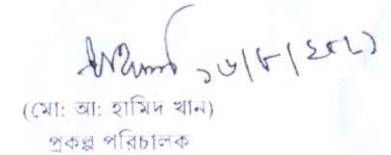 ১৬/৮/২০২১
(মো: আ: হামিদ খান)
প্রকল্প পরিচালক